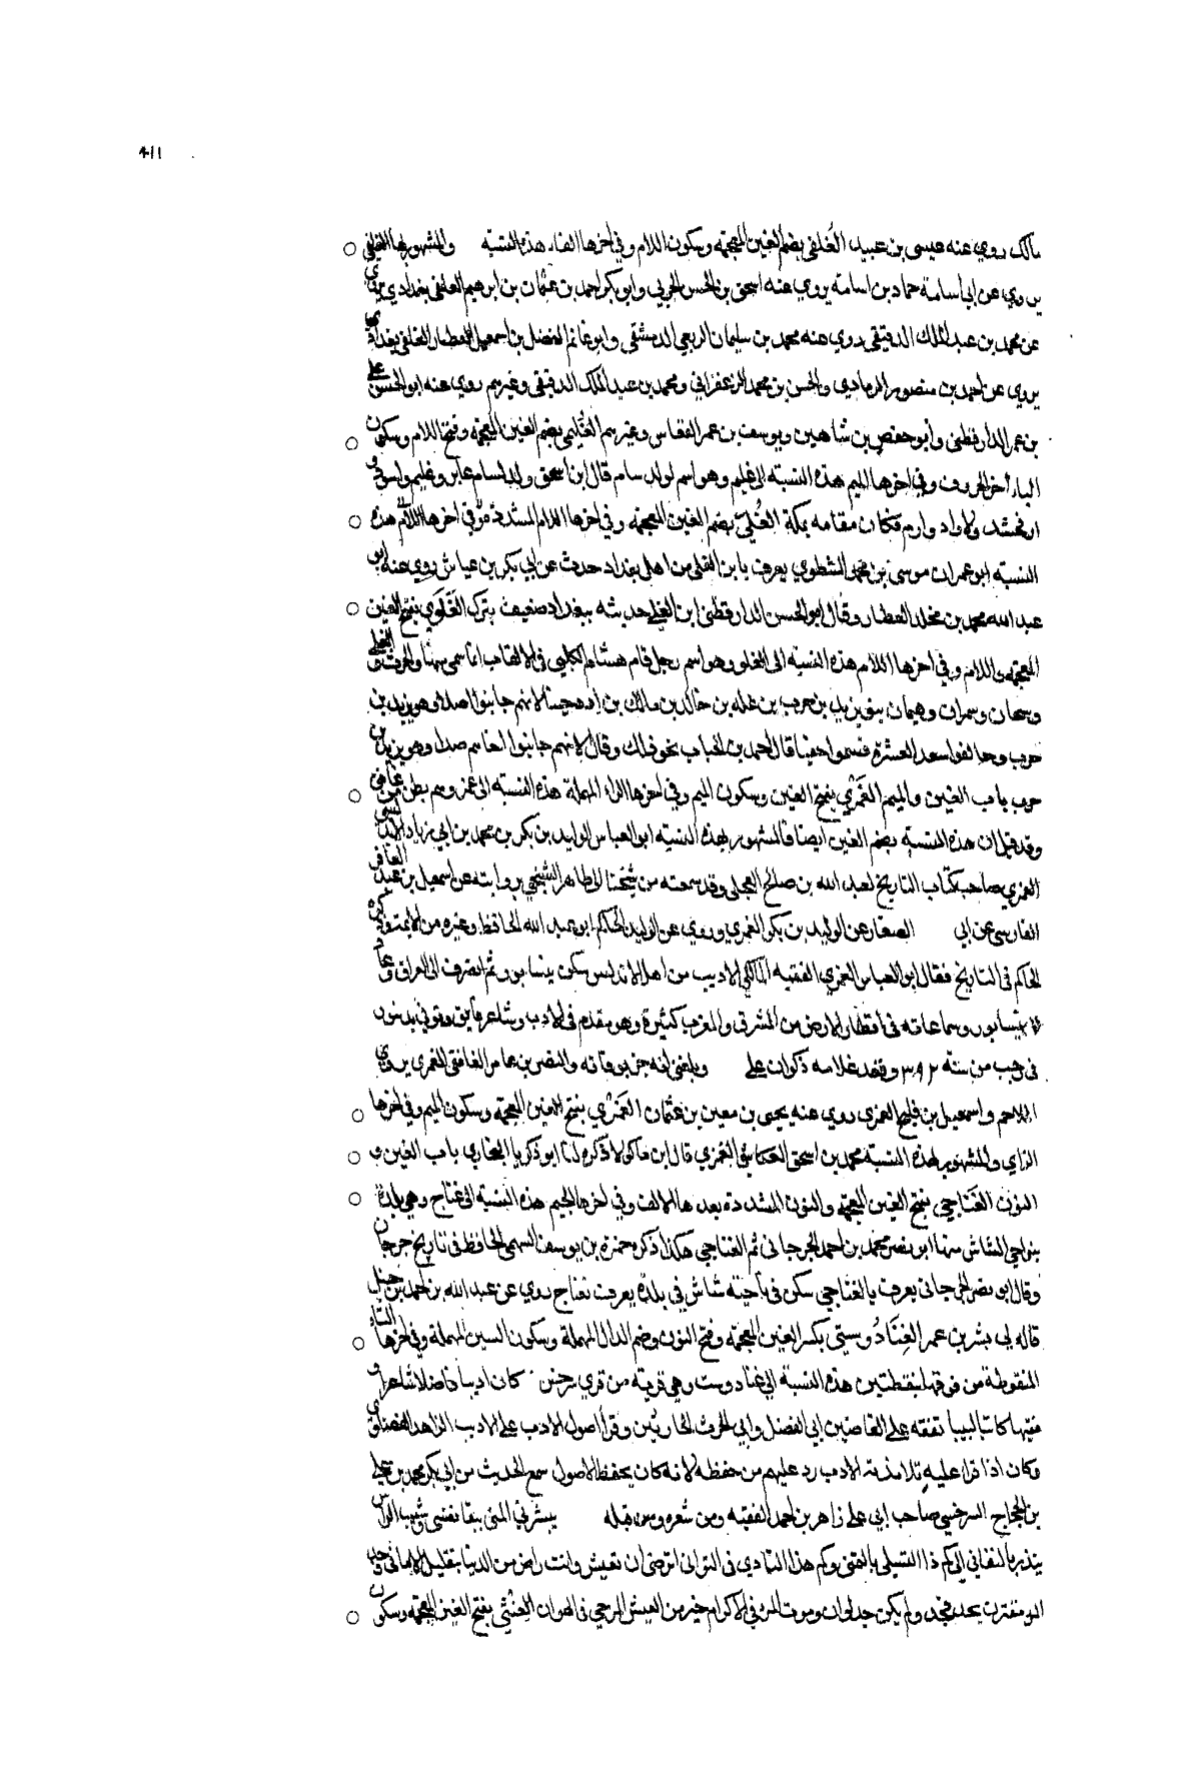 411
مالك روي عنه عيسى بن عبيد الغلفي بضم الغين المعجمة وسكون اللام وفي اخرها الفاء هذه النسبة والمشهور بها
يروي عن ابي اسامة حماد بن اسامة يروي عنه اسحق بن الحسن الحربي وابو بكر احمد بن عثمان بن ابرهيم الغلفي بغدادي يروي
عن محمد بن عبد الملك الدقيقي روي عنه محمد بن سليمان الربعي الدمشقي وابو غانم الفضل بن اسمعيل العطار الغلفي بغدادي
يروي عن احمد بن منصور الرمادي والحسن بن محمد الزعفراني ومحمد بن عبد الملك الدقيقي وغيرهم روي عنه ابو الحسن علي
بن عمر الدارقطني وابو حفص بن شاهين ويوسف بن عمر القواس وغيرهم الغليمي بضم الغين المعجمة وفتح اللام وسكون
الياء آخر الحروف وفي اخرها الميم هذه النسبة الى غليم وهو اسم لولد سام قال ابن اسحق ولد لسام عابر وغليم واسود
ارفخشد ولاود وارم فكان مقامه بمكة الغلي بضم الغين المعجمة وفي اخرها اللام المشددة هذه
النسبة ابو عمران موسى بن محمد الشطوي يعرف بابن الغلي من اهل بغداد حدث عن ابي بكر بن عياش روي عنه ابو
عبد الله محمد بن مخلد العطار وقال ابو الحسن الدارقطني ابن الغلي حديثه ببغداد ضعيف يترك الغلوي بفتح الغين
المعجمة واللام وفي اخرها اللام هذه النسبة الى الغلو وهو اسم رجل قام هشام الكلبي في الالقاب انما سمي منها والحرث
وسحان وسمران وهيمان بنو يزيد بن حرب بن عله بن خالد بن مالك بن ادد جنبا لانهم جانبوا صدا وهو يزيد بن
حرب وحالفوا سعد العشرة فسموا قال احمد بن الحباب نحو ذلك وقال لانهم جانبوا صدا وهو يزيد بن
حرب باب الغين والميم الغمري بفتح الغين وسكون الميم وفي اخرها الراء المهملة هذه النسبة الى غمر وهم بطن من غافق
وقد قيل ان هذه النسبة بضم الغين ايضا فالمشهور بهذه النسبة ابو العباس الوليد بن بكر بن محمد بن ابي زياد الاندلسي
الغمري صاحب كتاب التاريخ لعبد الله بن صالح العجلي وقد سمعته من شيخنا ابي طاهر السنجي بروايته عن اسمعيل بن عبد الغافر
الفارسي عن ابي الصفار عن الوليد بن بكر الغمري وروي عن الوليد الحاكم ابو عبد الله الحافظ وغيره من الائمة وذكره
الحاكم في التاريخ فقال ابو العباس الغمري الفقيه المالكي الاديب من اهل الاندلس سكن نيسابور ثم انصرف الى العراق وعاد
الى نيسابور وسماعاته في اقطار الارض من المشرق والمغرب كثيرة وهو مقدم في الادب وشاعر فايق وتوفي بدينور
في رجب من سنة ٣٩٢ وقصد غلامه ذكوان علي وبلغني انه جن بوفاته والنضر بن عامر الغافقي الغمري يروي
واسمعيل بن فليح الغمري روي عنه يحيى بن معين بن عثمان الغمزي بفتح الغين المعجمة وسكون الميم وفي اخرها
الزاي والمشهور بهذه النسبة محمد بن اسحق العكاشي الغمزي قال ابن ماكولا ذكره لنا ابو زكريا البخاري باب الغين و
النون الغناجي بفتح الغين المعجمة والنون المشددة بعدها الالف وفي اخرها الجيم هذه النسبة الى غناج وهي بلدة
بنواحي الشاش منها ابو نصر محمد بن احمد الجرجاني ثم الغناجي هكذا ذكره حمزة بن يوسف السهمي الحافظ في تاريخ جرجان
وقال ابو نصر الجرجاني يعرف بالغناجي سكن في ناحية شاش في بلدة يعرف بغناج روي عن عبد الله بن احمد بن حنبل
قاله لي بشر بن عمر الغنادوستي بكسر الغين المعجمة وفتح النون وضم الدال المهملة وسكون السين المهملة وفي اخرها التاء
المنقوطة من فوقها بنقطتين هذه النسبة الى غنادوست وهي قرية من قري سرخس كان اديبا فاضلا شاعرا و
فقيها كاتبا لبيبا تفقه علي القاضيين ابي الفضل وابي الحرث الحارثيين وقرأ اصول الادب علي الاديب الزاهد
وكان اذا قرا عليه تلامذته الادب رد عليهم من حفظه لانه كان يحفظ الاصول سمع الحديث من ابي بكر محمد بن علي
بن الحجاج السرخسي صاحب ابي علي زاهر بن احمد الفقيه ومن شعره ومن قبله يبشرني المنى ببقا نفسي وشيب الراس
ينذر بالتفاني الى كم ذا التسلي بالتمني وكم هذا التمادي في التواني اترضى ان تعيش وانت راض من الدنيا بتقليل الاماني
وموت المرء في الاكرام خير من العيش المرجي في الهوان الغنثي بفتح الغين المعجمة وسكون